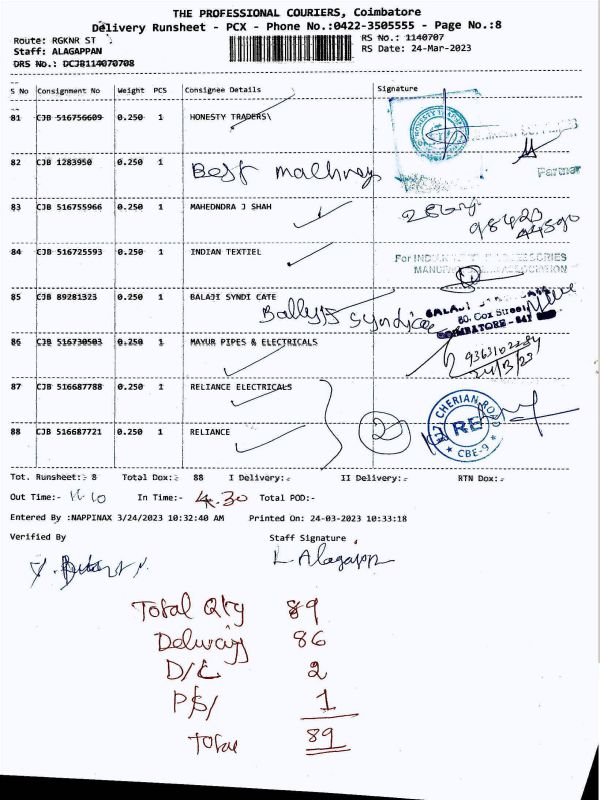 THE PROFESSIONAL COURIERS, Coimbatore
Delivery Runsheet - PCX - Phone No.:0422-3505555 - Page No.:8
Route: RGKNR ST
RS No.: 1140707
Staff: ALAGAPPAN
RS Date: 24-Mar-2023
DRS No.: DCJB114070708
S No Consignment No Weight PCS Consignee Details Signature
81 CJB 516756609 0.250 1 HONESTY TRADERS\
Partner
82 CJB 1283950 0.250 1 Best
83 CJB 516755966 0.250 1 MAHEDNDRA J SHAH
84 CJB 516725593 0.250 1 INDIAN TEXTIEL
85 CJB 89281323 0.250 1 BALAJI SYNDI CATE
60, Cox Street
COIMBATORE - 641
86 CJB 516730503 0.250 1 MAYUR PIPES & ELECTRICALS
9363102284
24/3/23
87 CJB 516687788 0.250 1 RELIANCE ELECTRICALS
88 CJB 516687721 0.250 1 RELIANCE
2
CHERIAN ROAD
RE
★ CBE-9 ★
Tot. Runsheet:- 8 Total Dox:- 88 I Delivery:- II Delivery:- RTN Dox:-
Out Time:- 11.10 In Time:- 4.30 Total POD:-
Entered By :NAPPINAX 3/24/2023 10:32:40 AM Printed On: 24-03-2023 10:33:18
Verified By Staff Signature
L. Alagapp
Total Qty 89
Delivery 86
D/L 2
P/S/ 1
Total 89